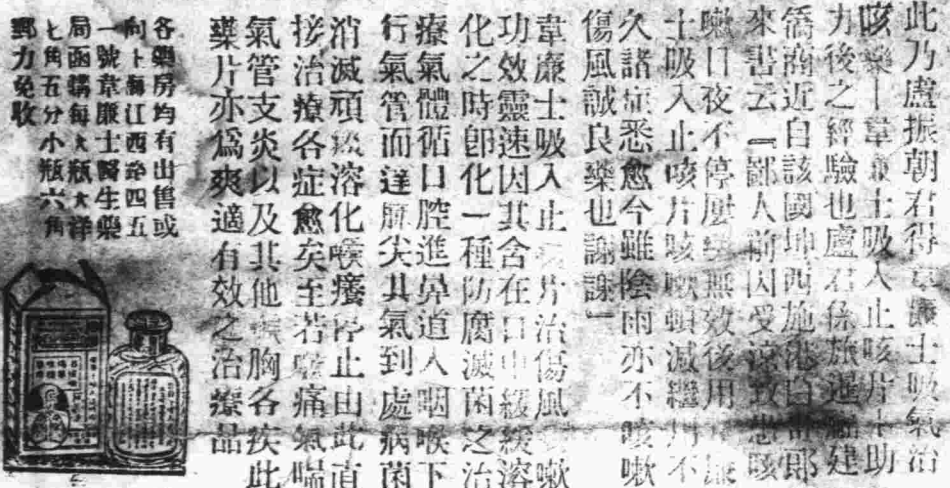 此乃盧振朝君得韋廉士吸氣治
咳藥韋廉士吸入止咳片之助
力後之經驗也盧君係旅暹福建
僑商近自該國坤西施港白計郎
來書云『鄙人前因受涼致患咳
嗽日夜不停屢藥無效後用韋廉
士吸入止咳片咳嗽頓減繼用不
久諸症悉愈今雖陰雨亦不咳嗽
傷風誠良藥也謝謝』
韋廉士吸入止咳片治傷風咳嗽
功效靈速因其含在口中緩緩溶
化之時卽化一種防腐滅菌之治
療氣體循口腔進鼻道入咽喉下
行氣管而達肺尖其氣到處病菌
消滅頑痰溶化喉癢停止由此直
接治療各症愈矣至若喉痛氣喘
氣管支炎以及其他喉胸各疾此
藥片亦爲爽適有效之治療品
各藥房均有出售或
向上海江西路四五
一號韋廉士醫生藥
局函購每大瓶大洋
七角五分小瓶六角
郵力免收